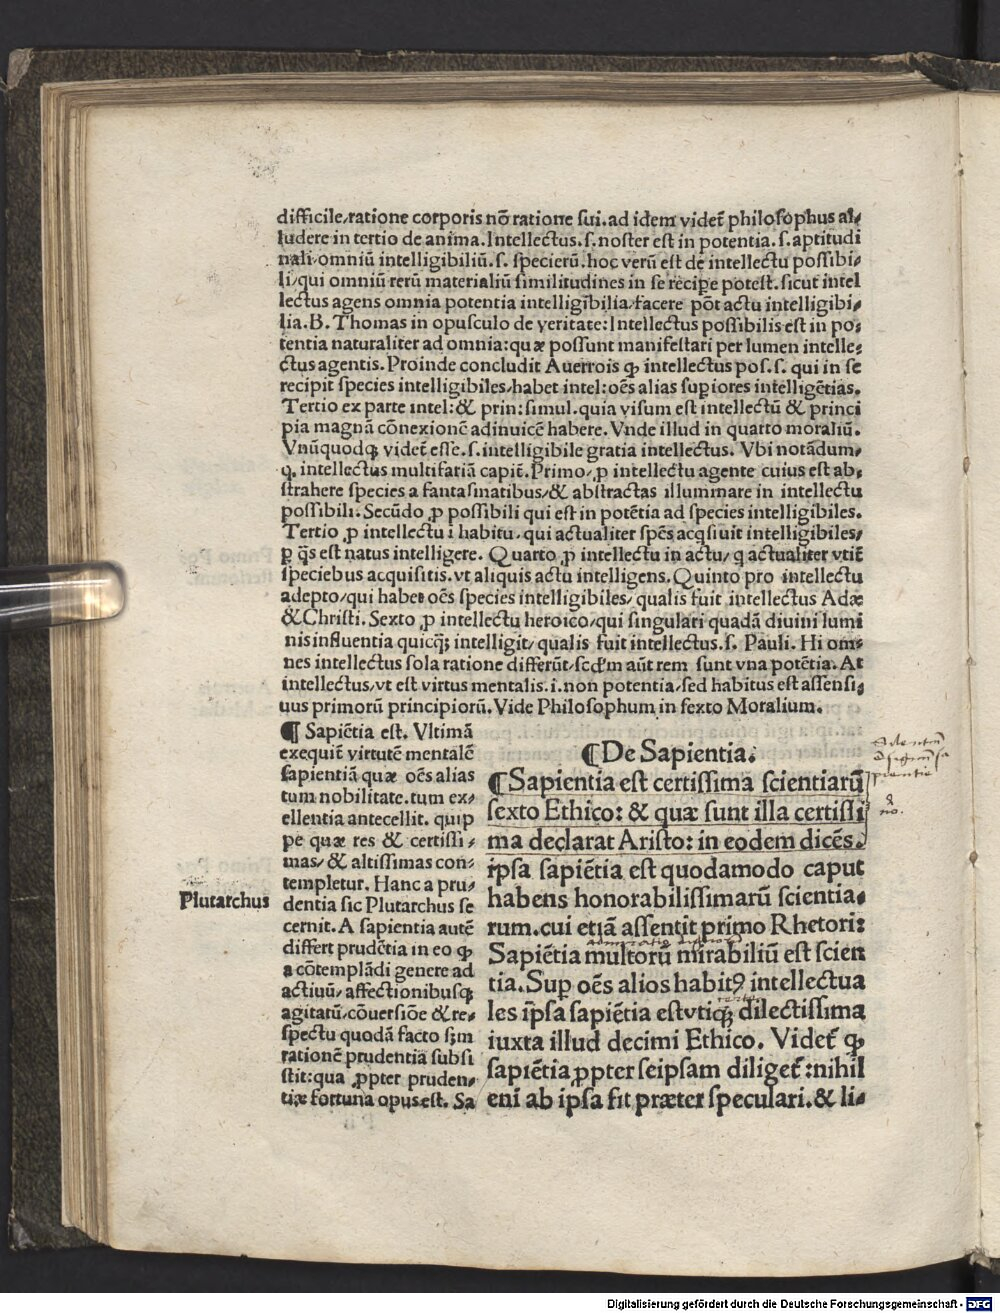 difficile,ratione corporis nõ ratione sui.ad idem videt̃ philosophus al⸗
ludere in tertio de anima.Intellectus.s.noster est in potentia.s.aptitudi
nali,omniũ intelligibiliũ.s. specierũ.hoc verũ est de intellectu possibi⸗
li,qui omniũ rerũ materialiũ similitudines in se recipe potest.sicut intel
lectus agens omnia potentia intelligibilia,facere põt actu intelligibi⸗
lia.B. Thomas in opusculo de veritate:Intellectus possibilis est in po⸗
tentia naturaliter ad omnia:quæ possunt manifestari per lumen intelle⸗
ctus agentis. Proinde concludit Auerrois ꝙ intellectus pos.s. qui in se
recipit species intelligibiles,habet intel:oẽs alias supiores intelligẽtias.
Tertio ex parte intel:& prin:simul.quia visum est intellectũ & princi
pia magnã cõnexionẽ adinuicẽ habere. Vnde illud in quarto moraliũ.
Vnũquodqꝫ videt̃ esse.s.intelligibile gratia intellectus. Vbi notãdum,
q. intellectus multifariã capit̃. Primo, ꝓ intellectu agente cuius est ab⸗
strahere species a fantasmatibus,& abstractas illuminare in intellectu
possibili. Secũdo ꝓ possibili qui est in potẽtia ad species intelligibiles.
Tertio ꝓ intellectu i habitu, qui actualiter spẽs acqsiuit intelligibiles,
ꝑ q̃s est natus intelligere. Quarto ꝓ intellectu in actu, q actualiter vtit̃
speciebus acquisitis.vt aliquis actu intelligens. Quinto pro intellectu
adepto,qui habet oẽs species intelligibiles, qualis fuit intellectus Adæ
& Christi. Sexto ꝓ intellectu heroico,qui singulari quadã diuini lumi
nis influentia quicqꝫ intelligit, qualis fuit intellectus.s. Pauli. Hi om⸗
nes intellectus sola ratione differũt,scd̃m aũt rem sunt vna potẽtia. At
intellectus,vt est virtus mentalis.i.non potentia,sed habitus est assensi⸗
uus primorũ principiorũ. Vide Philosophum in sexto Moralium.
¶ Sapiẽtia est. Vltimã
exequit̃ virtutẽ mentalẽ
sapientiã quæ oẽs alias
tum nobilitate.tum ex⸗
ellentia antecellit. quip
pe quæ res & certissi⸗
mas, & altissimas con⸗
templetur. Hanc a pru⸗
dentia sic Plutarchus se
cernit. A sapientia autẽ
differt prudẽtia in eo ꝙ
a cõtemplãdi genere ad
actiuũ, affectionibusqꝫ
agitatũ,cõuersiõe & re⸗
spectu quodã facto sꝫm
rationẽ prudentiã subsi
stit:qua ꝓpter pruden⸗
tiæ fortuna opus est. Sa
Plutarchus
¶De Sapientia.
¶Sapientia est certissima scientiarũ
sexto Ethico: & quæ sunt illa certissi
ma declarat Aristo: in eodem dicẽs.
ipsa sapiẽtia est quodamodo caput
habens honorabilissimarũ scientia⸗
rum.cui etiã assentit primo Rhetori:
Sapiẽtia multorũ mirabiliũ est scien
tia.Suꝑ oẽs alios habitꝰ intellectua
les ip̃sa sapiẽtia est vtiqꝫ dilectissima
iuxta illud decimi Ethico. Videt̃ ꝙ
sapiẽtia ꝓpter seipsam diliget̃:nihil
eni ab ipsa fit præter speculari.& li⸗
Digitalisierung gefördert durch die Deutsche Forschungsgemeinschaft - DFG